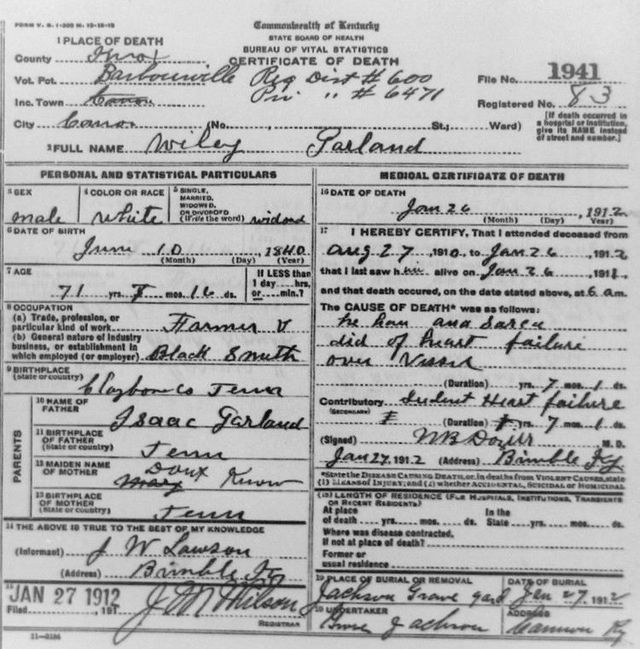 FORM V. S. 1-
Commonwealth of Kentucky
STATE BOARD OF HEALTH
BUREAU OF VITAL STATISTICS
CERTIFICATE OF DEATH
1 PLACE OF DEATH
County Knox
Vot. Pct. Barbourville Reg Dist # 600
File No. 1941
Inc. Town Pri " # 6471
Registered No. 83
City Canon (No. St.; Ward)
[If death occurred in a hospital or institution, give its NAME instead of street and number.]
2 FULL NAME Wiley Garland
PERSONAL AND STATISTICAL PARTICULARS
3 SEX male
4 COLOR OR RACE white
5 SINGLE, MARRIED, WIDOWED, OR DIVORCED (Write the word)
6 DATE OF BIRTH
June 10, 1840
(Month) (Day) (Year)
7 AGE
71 yrs. 7 mos. 16 ds.
If LESS than 1 day....hrs, or....min.?
8 OCCUPATION
(a) Trade, profession, or particular kind of work Farmer
(b) General nature of industry business, or establishment in which employed (or employer) Black Smith
9 BIRTHPLACE
(State or country) Claybon Co Tenn
PARENTS
10 NAME OF FATHER Isaac Garland
11 BIRTHPLACE OF FATHER (State or country) Tenn
12 MAIDEN NAME OF MOTHER Dont Know
13 BIRTHPLACE OF MOTHER (State or country) Tenn
14 THE ABOVE IS TRUE TO THE BEST OF MY KNOWLEDGE
(Informant) J W Lawson
(Address) Bimble Ky
15 JAN 27 1912
Filed 191
REGISTRAR
11-3184
MEDICAL CERTIFICATE OF DEATH
16 DATE OF DEATH
Jan 26, 1912
(Month) (Day) (Year)
17 I HEREBY CERTIFY, That I attended deceased from
Aug 27, 1910, to Jan 26, 1912
that I last saw him alive on Jan 26, 191
and that death occured, on the date stated above, at 6 am.
The CAUSE OF DEATH* was as follows:
did of heart failure
over
(Duration) yrs. 7 mos. 1 ds.
Contributory Heart failure
(SECONDARY)
(Duration) yrs. 7 mos. 1 ds.
(Signed) M.D.
Jan 27, 1912 (Address) Bimble Ky
*State the DISEASE CAUSING DEATH, or, in deaths from VIOLENT CAUSES, state (1) MEANS OF INJURY; and (2) whether ACCIDENTAL, SUICIDAL or HOMICIDAL
18 LENGTH OF RESIDENCE (FOR HOSPITALS, INSTITUTIONS, TRANSIENTS OR RECENT RESIDENTS)
At place of death yrs. mos. ds. In the State yrs. mos. ds.
Where was disease contracted, if not at place of death?
Former or usual residence
19 PLACE OF BURIAL OR REMOVAL
Jackson Grave yard
DATE OF BURIAL
Jan 27, 1912
20 UNDERTAKER
Jackson
ADDRESS
Cannon Ky